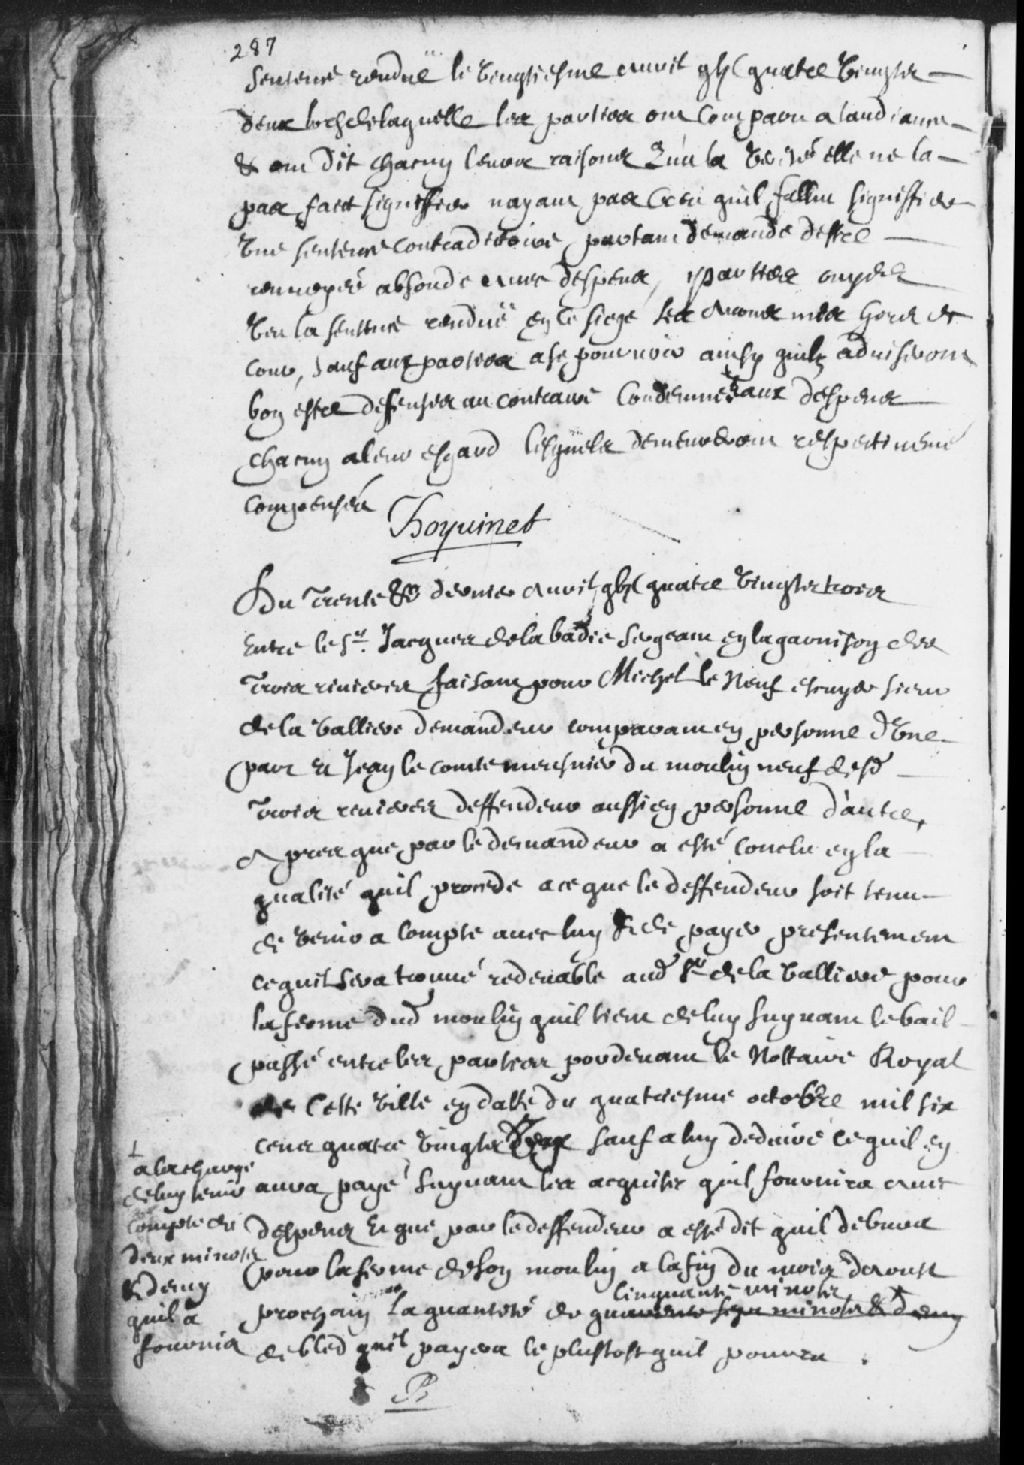 287
sentence rendue le vingtiesme avril gbjC quatre vingtz
deux lors de laquelle les parties ont comparu a laudiance
& ont dit chacun leurs raisons qu'a la verité elle ne la
pas fait signiffier nayant pas creu quil fallut signiffier
une sentence contradictoire, partant demande destre
renvoyé absoude avec despens, parties ouyes
veu la sentence rendue en ce siege les avons mis hors de
cour, sauf aux parties a se pourvoir ainsy quilz adviseront
bon estre deffenses au contraire condemnés aux despens
chacun a leur esgard lesquels demeureront respectivement
compensés
Boyvinet
Du trente & dernier avril gbjC quatre vingtz trois
Entre le Sr. Jacques de labadie sergeant en la garnison des
trois rivieres faisant pour Michel le Neuf escuyer sieur
de la valliere demandeur comparant en personne d'une
part et Jean le comte meusnier du moulin neuf desd
trois rivieres deffendeur aussi en personne d'autre,
apres que par le demandeur a esté conclu en la
qualité quil procede a ce que le deffendeur soit tenu
de venir a compte avec luy & de payer presentement
ce quil sera trouvé redevable aud Sr de la valliere pour
la ferme dud moulin quil tient de luy suyvant le bail
passé entre les parties pardevant le Nottaire Royal
de Cette ville en datte du quatriesme octobre mil six
cens quatre vingtz deux sauf a luy deduire ce quil en
aura payé suyvant les acquits quil fournira avec
despens Et que par le deffendeur a esté dit quil debvra
pour la ferme de son moulin a la fin du mois daoust
cinquante minotz
prochain la quantité de quarante sept minotz & demy
de bled quil payera le plustost quil pourra.
a la charge
de luy tenir
compte de
deux minotz
& demy
quil a
fournis